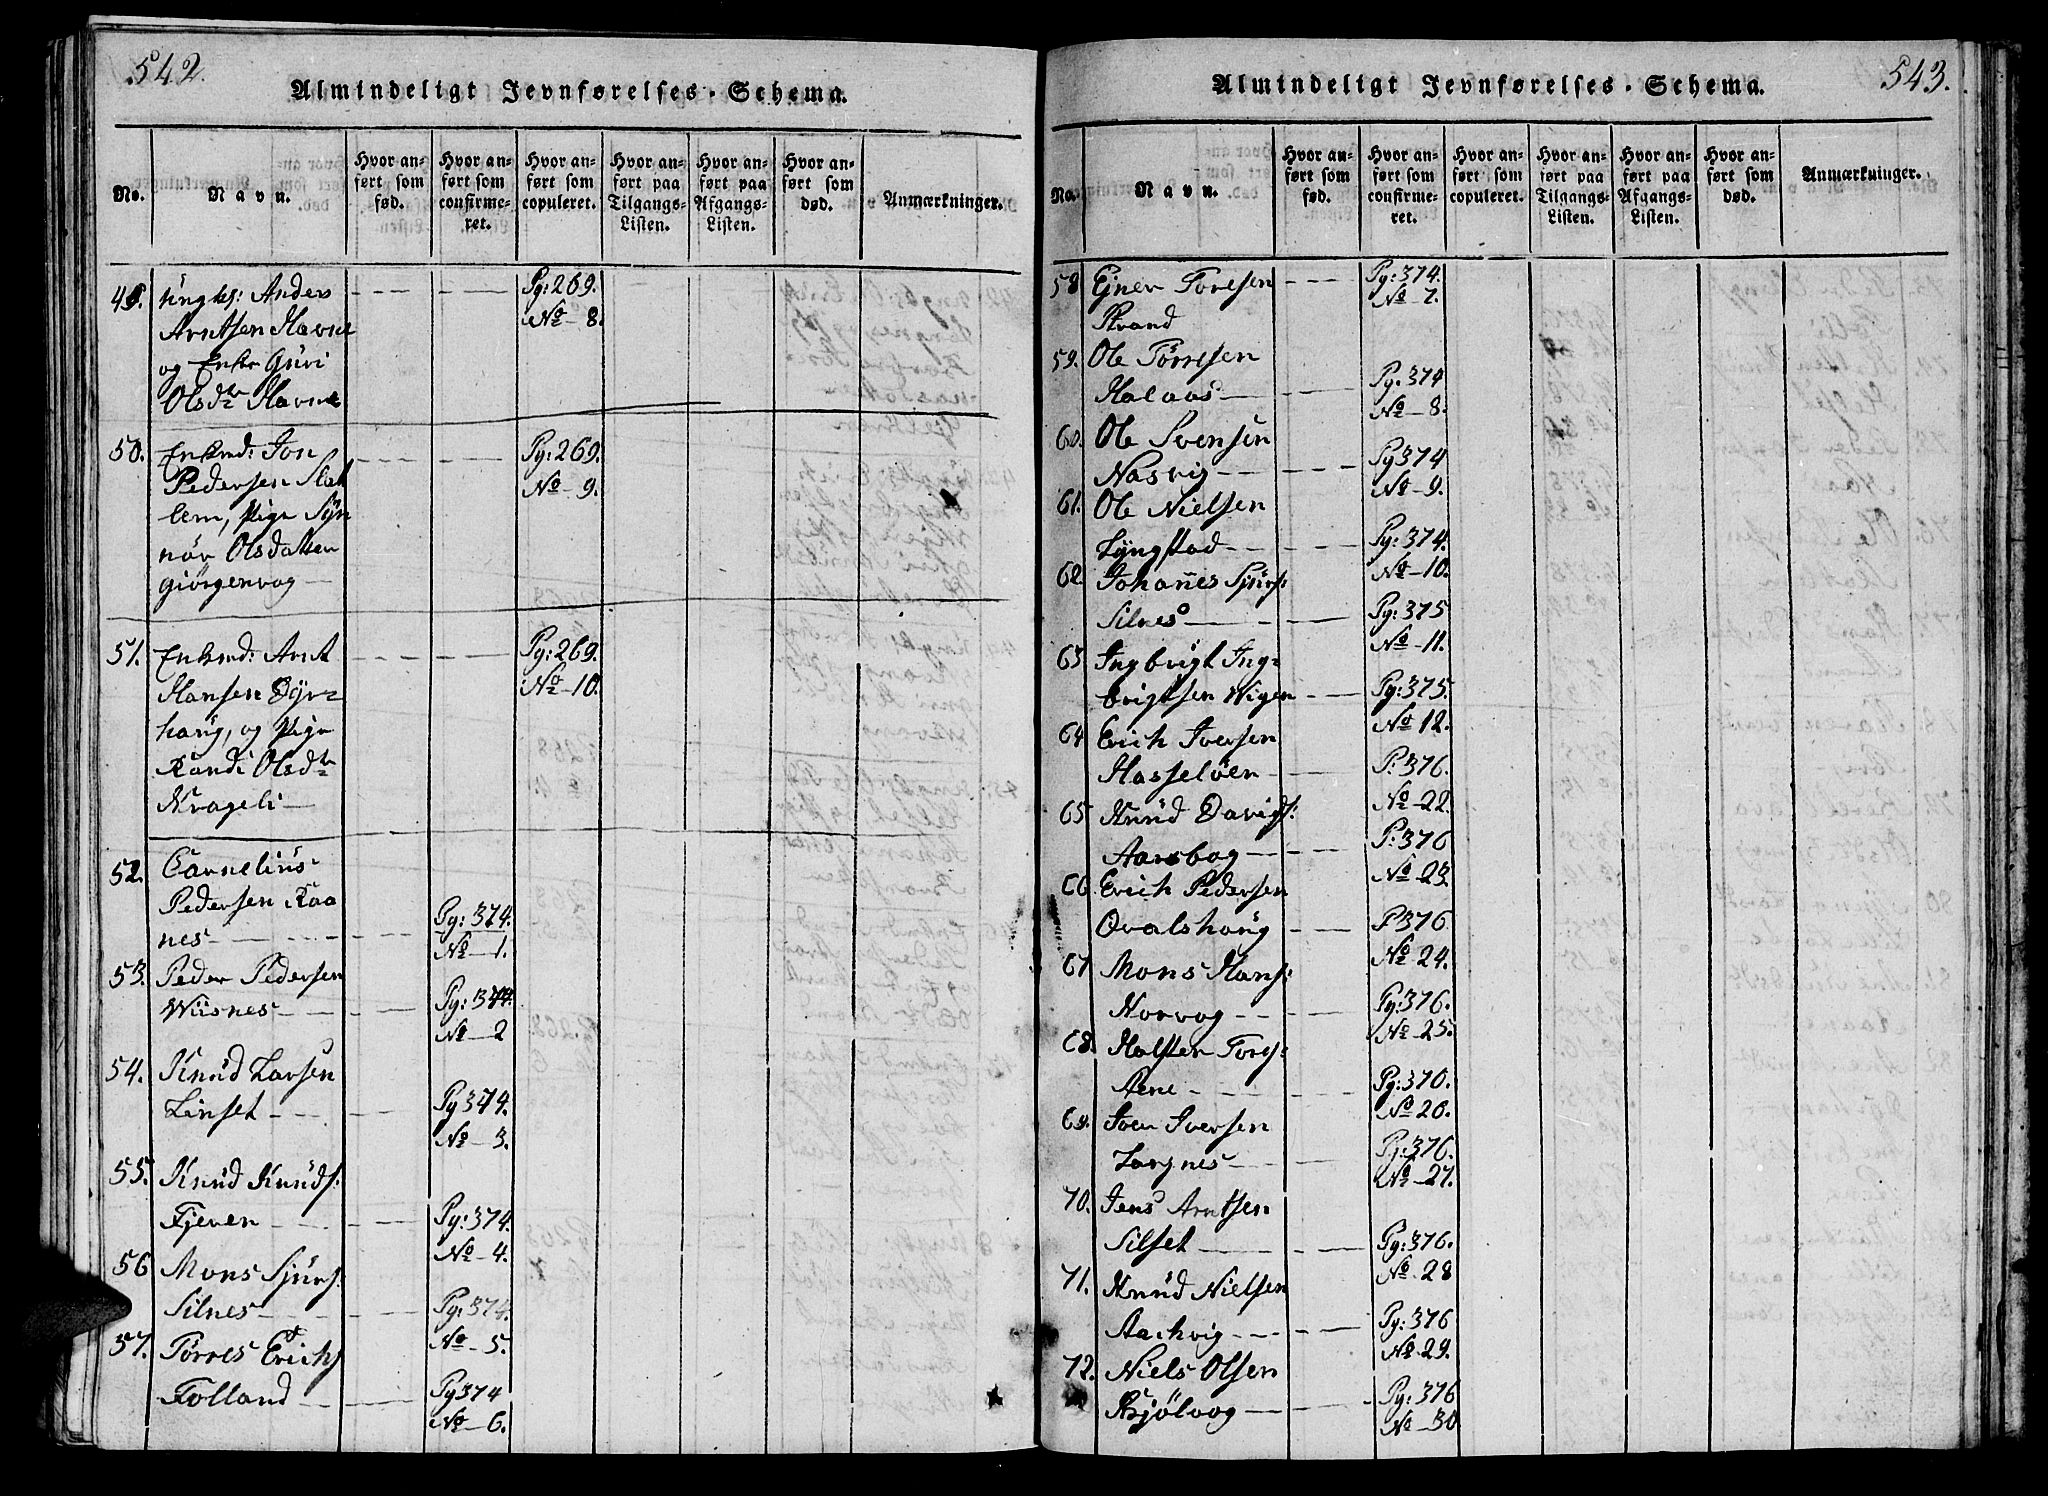 542.
Almindeligt Jevnførelses-Schema.
No.
Navn.
Hvor anført som fød.
Hvor anført som confirmeret.
Hvor anført som copuleret.
Hvor anført paa Tilgangs-Listen.
Hvor anført paa Afgangs-Listen.
Hvor anført som død.
Anmærkninger.
49. Ungks: Anders — Pg: 269.
Arntsen Havne No 8.
og Enke Guri
Olsdtr Havne
50. Enkmd: Jon — Pg: 269.
Pedersen Slat No 9.
lem, Pige Syn
nøv Olsdatter
giörgenvog —
51. Enkmd: Arnt — Pg: 269.
Hansen Dyr= No 10.
haug, og Pige
Randi Olsdtr
Krageli —
52. Cornelius
Pedersen Raa Pg: 374.
nes — No 1.
53. Peder Pedersen
Wiisnes — Pg: 374.
No 2
54. Knud Larsen
Linset — Pg 374.
No 3.
55. Knud Knuds:
Fjeven — Pg: 374.
No 4.
56 Mons Sjurs:
Silnes — Pg: 374.
57. Torres Erichs No 5.
Folland — Pg 374
No 6.
543.
Almindeligt Jevnførelses-Schema.
No.
Navn.
Hvor anført som fød.
Hvor anført som confirmeret.
Hvor anført som copuleret.
Hvor anført paa Tilgangs-Listen.
Hvor anført paa Afgangs-Listen.
Hvor anført som død.
Anmærkninger.
58 Ejner Toresen — Pg: 374.
Strand No 7.
59. Ole Törresen
Halaas — Pg: 374
No 8.
60. Ole Svensen
Nasvig — Pg 374
No 9.
61. Ole Nielsen
Lyngstad — Pg: 374.
62. Johannes Sjurs: No 10.
Silnes — Pg: 375
No 11.
63 Ingbrigt Ing=
brigtsen Wigen — Pg: 375.
No 12.
64 Erich Iversen
Hasselöen — P: 376.
No 22.
65 Knud Davids:
Aarsbog — P: 376
No 23.
66 Erich Pedersen
Ovalshaug — P 376
No 24.
67 Mons Hans:
Norvog — Pg: 376.
No 25.
68. Halsten Tores:
Aene — Pg: 376.
No 26.
69. Iver Iversen
Langnes — Pg: 376.
No 27.
70. Jens Arntsen
Silset — Pg: 376.
No 28
71. Knud Nielsen
Aachvig — Pg: 376
No 29.
72. Niels Olsen
Skjölvog — Pg: 376
No 30